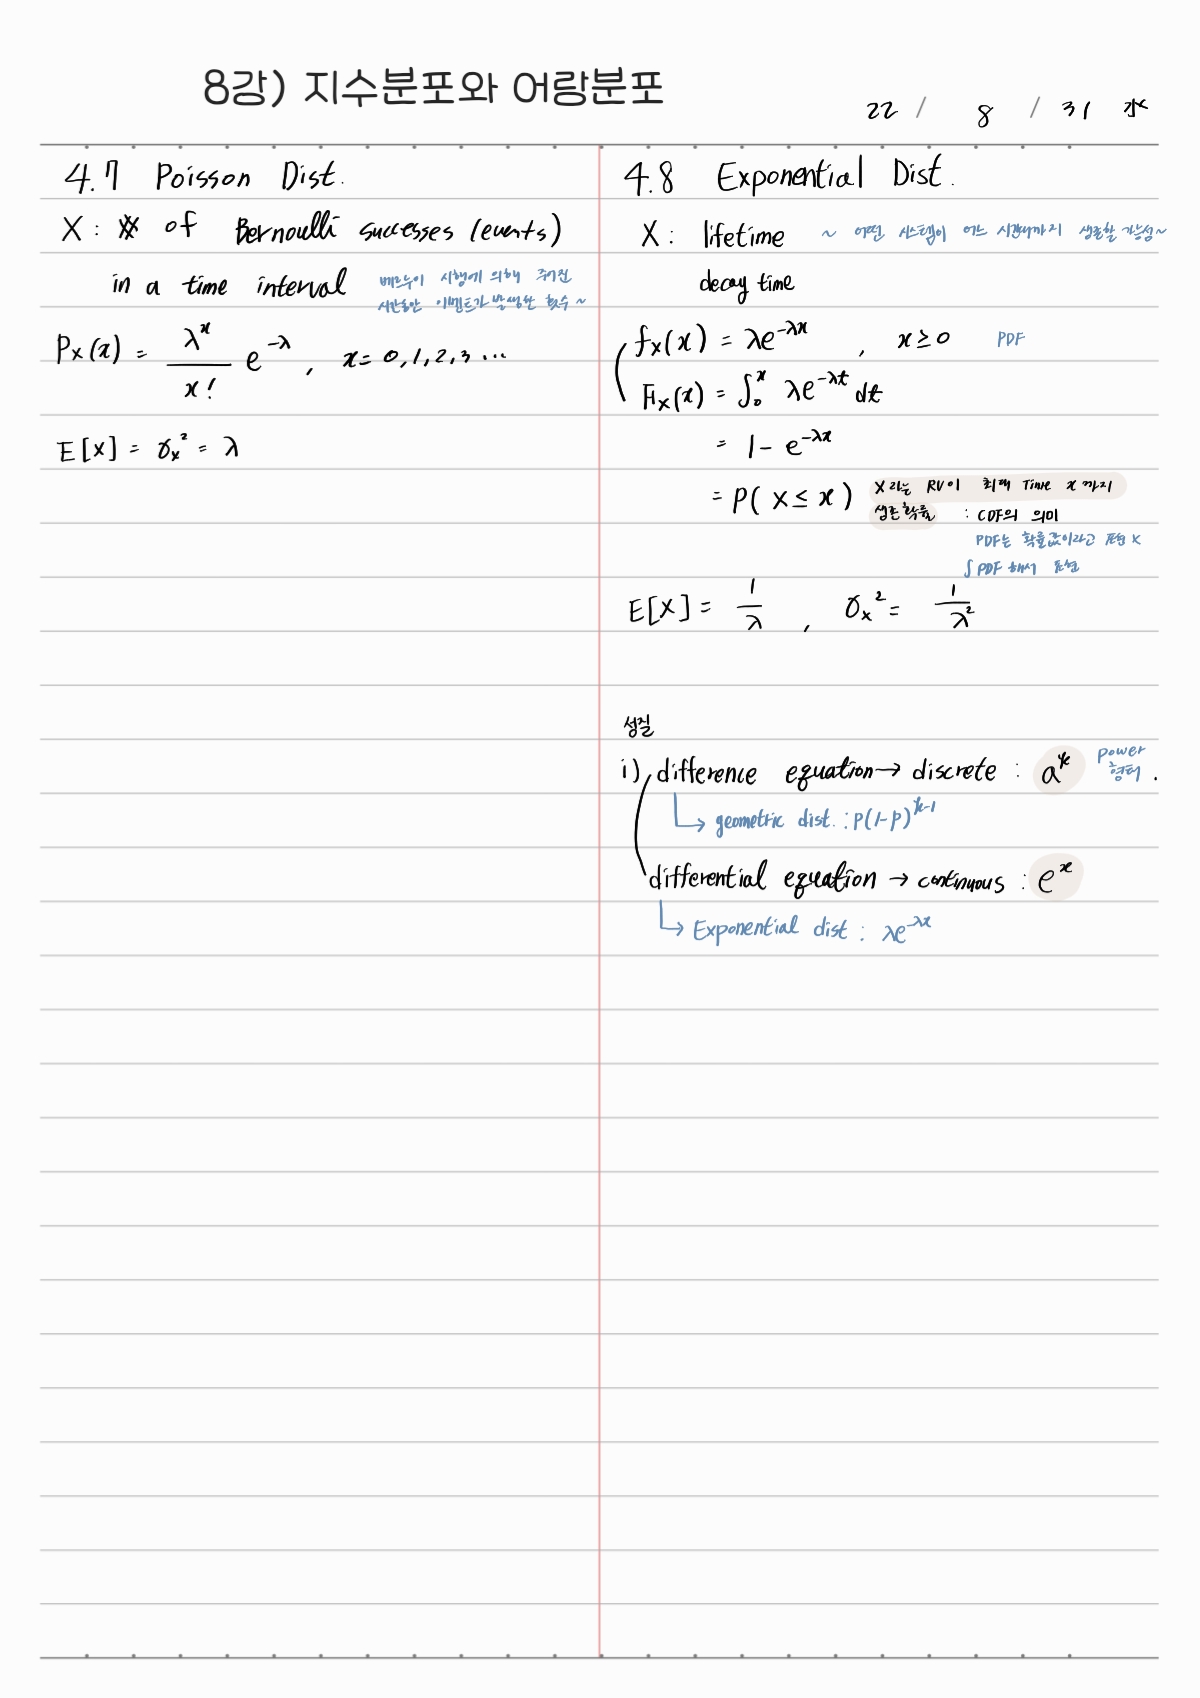 8강) 지수분포와 어랑분포
22 / 8 / 31 水
4.7 Poisson Dist.
X : # of Bernoulli successes (events)
in a time interval
베르누이 시행에 의해 주어진
시간동안 이벤트가 발생한 횟수 ~
Px(x) = λ^x / x! e^-λ , x = 0, 1, 2, 3 ...
E[X] = σx² = λ
4.8 Exponential Dist.
X : lifetime ~ 어떤 시스템이 어느 시간대까지 생존할 가능성~
decay time
fx(x) = λe^-λx , x ≥ 0 PDF
Fx(x) = ∫₀^x λe^-λt dt
= 1 - e^-λx
= P( X ≤ x ) X라는 RV이 최대 Time x 까지
생존확률 : CDF의 의미
PDF는 확률값이라고 표현 X
∫ PDF 해서 표현
E[X] = 1/λ , σx² = 1/λ²
성질
i) difference equation → discrete : a^k power 형태.
↳ geometric dist. : p(1-p)^k-1
differential equation → continuous : e^x
↳ Exponential dist : λe^-λx